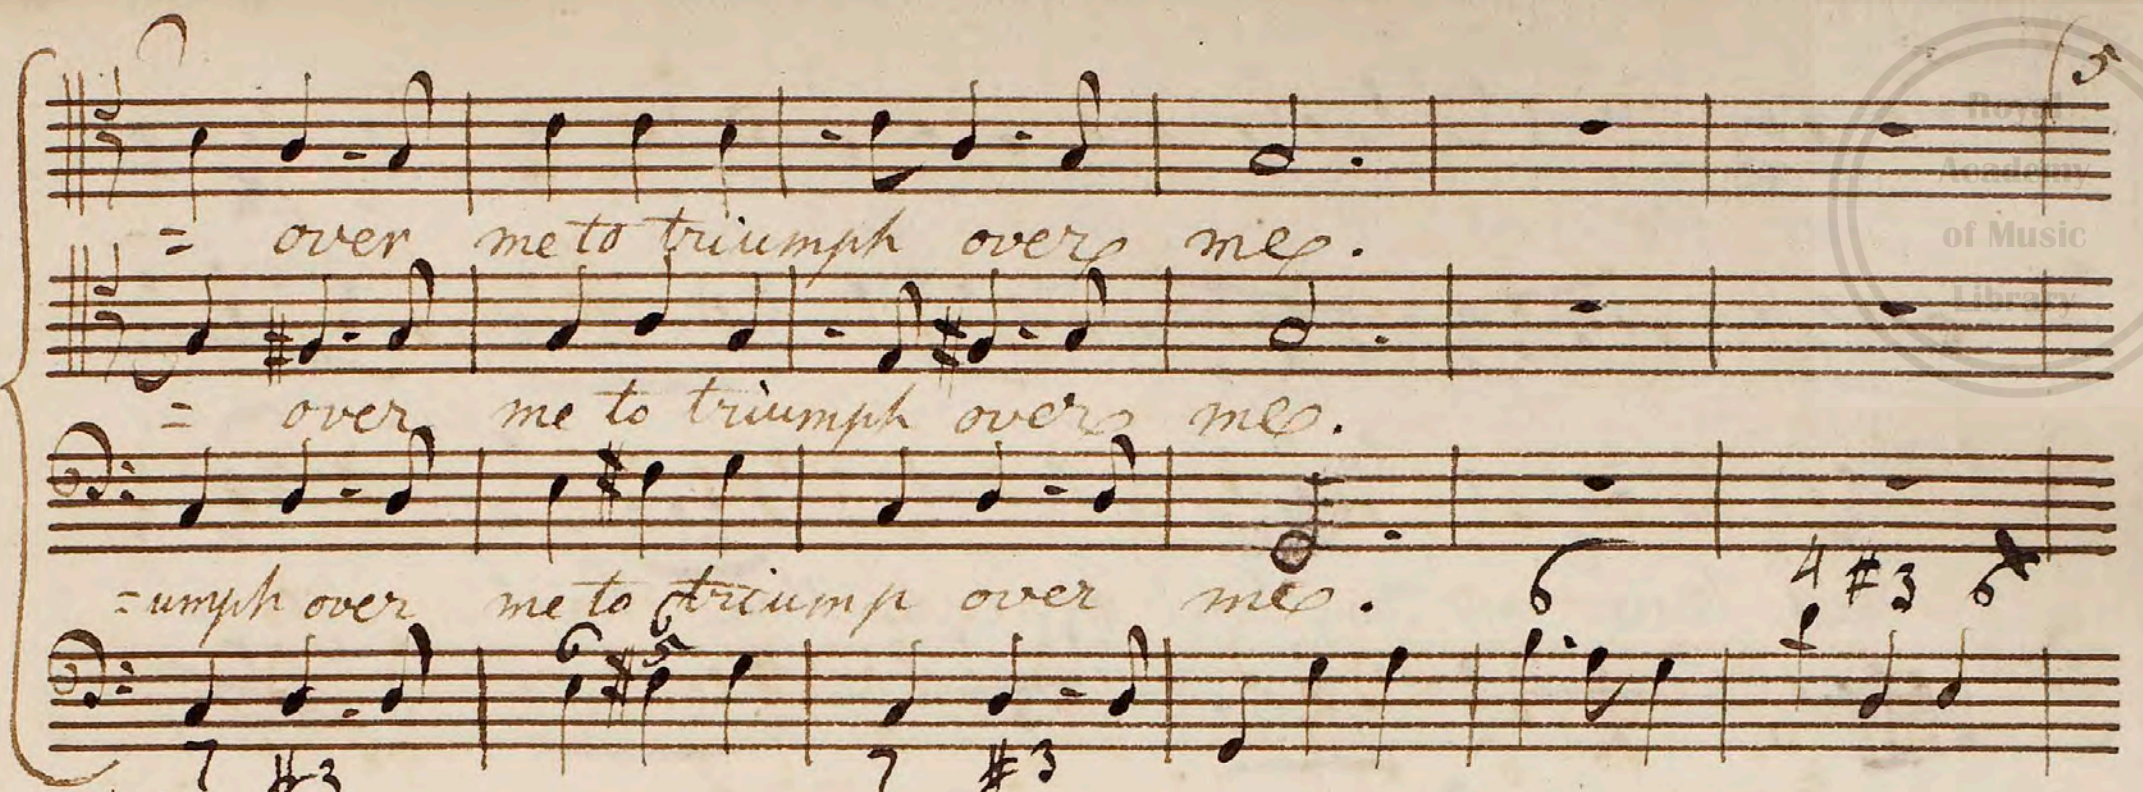 (5
Royal
Academy
of Music
Library
= over me to triumph over me.
= over me to triumph over me.
=umph over me to triump over me.
6 4 #3 6
6 6 5
7 #3 7 #3